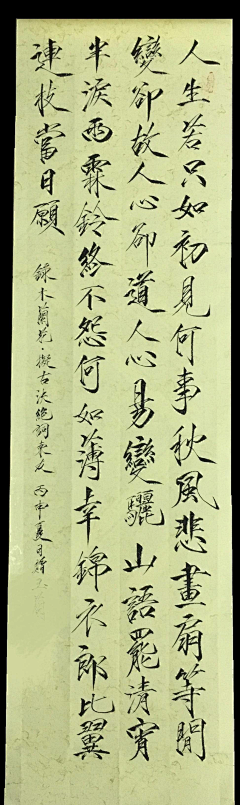 人生若只如初見何事秋風悲畫扇等閒
變卻故人心卻道人心易變驪山語罷清宵
半淚雨霖鈴終不怨何如薄幸錦衣郎比翼
連枝當日願
錄木蘭花·擬古決絕詞柬友 丙申夏月